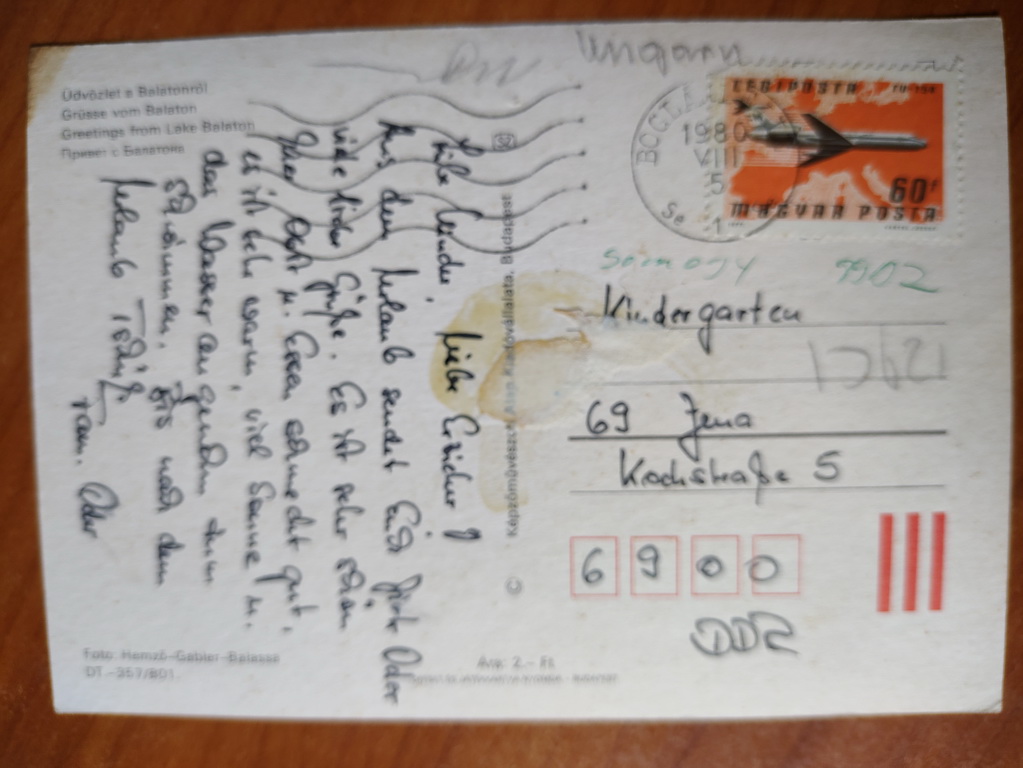 Üdvözlet a Balatonról
Grüsse vom Balaton
Greetings from Lake Balaton
Привет с Балатона
Liebe Kinder! Liebe Erzieher!
Aus dem Urlaub sendet Euch
viele liebe Grüße. Es ist sehr schön
hier. Essen schmeckt gut,
es ist sehr warm, viel Sonne u.
das Wasser angenehm zum
schwimmen. Bis nach dem
Urlaub Tschüß
Fam.
Foto: Hamzó-Gabler-Balassa
DT.-357/801.
Képzőművészeti Alap Kiadóvállalata, Budapest
Ára: 2.- Ft
Ungarn
LÉGIPOSTA TU-154
60f
MAGYAR POSTA
1980
VIII
Somogy
Kindergarten
69 Jena
Kochstraße 5
6 9 0 0
DDR